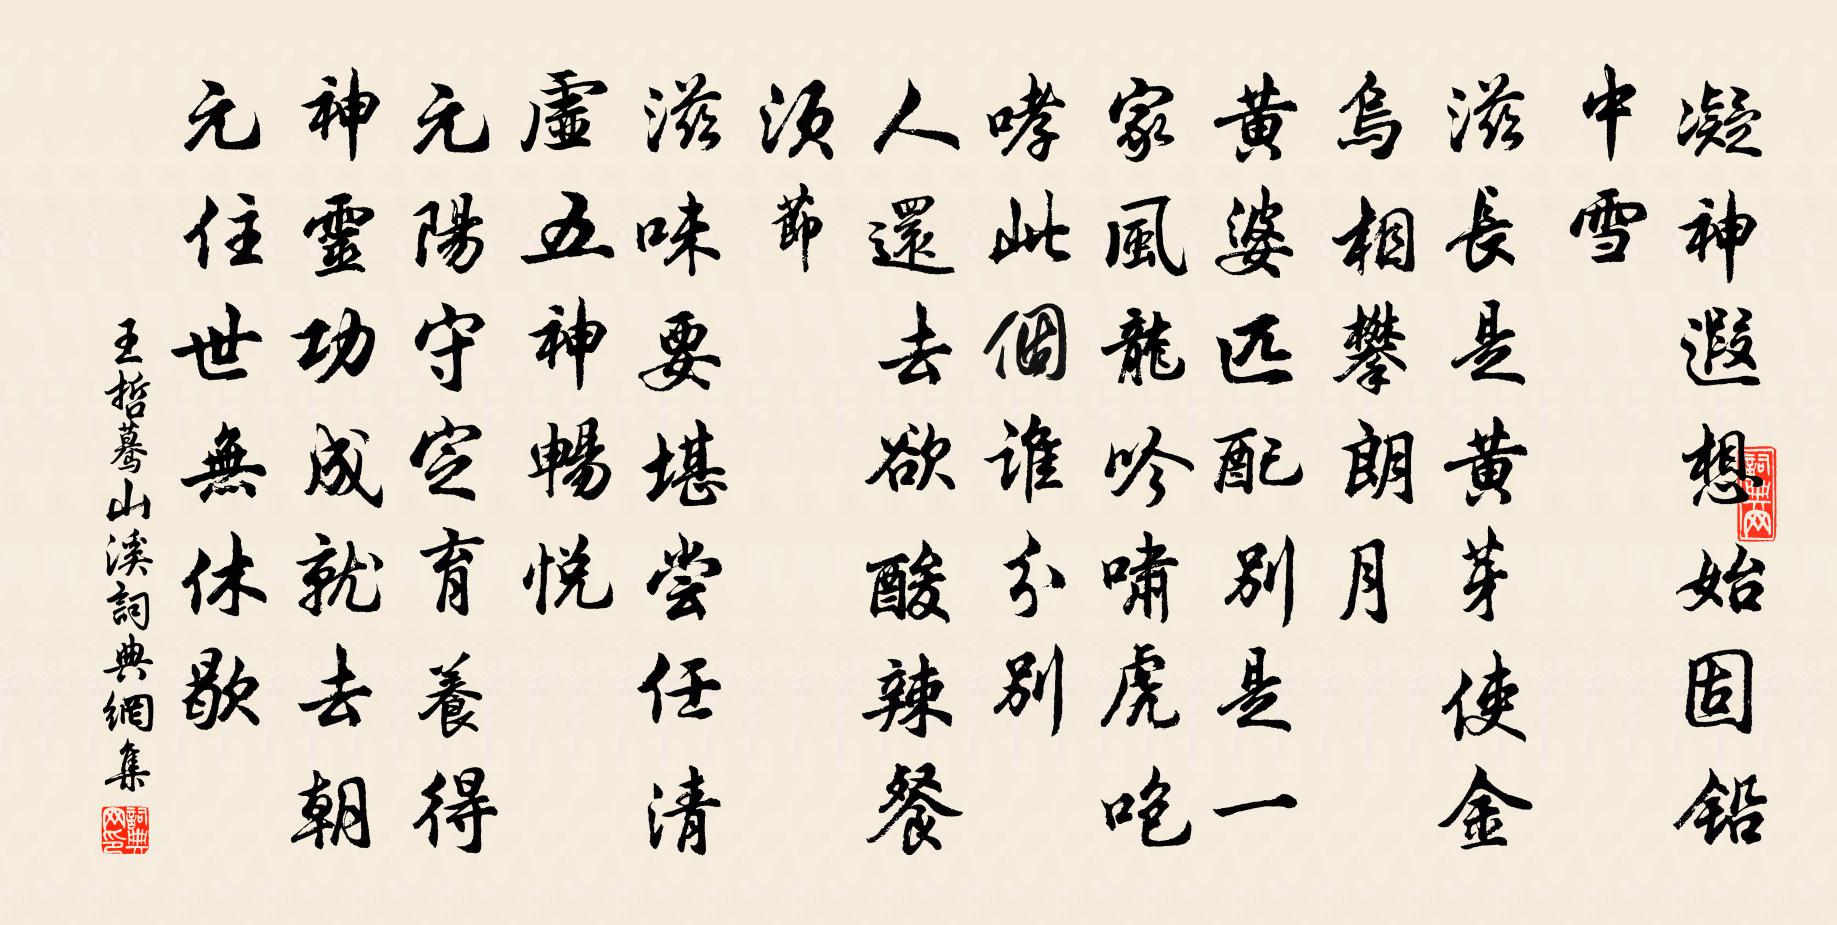 凝神遐想始固鉛
中雪
滋長是黃芽使金
烏相攀朗月
黃婆匹配別是一
家風龍吟嘯虎咆
哮此個誰分別
人還去欲酸辣餐
須節
滋味要堪嘗任清
虛五神暢悅
元陽守定育養得
神靈功成就去朝
元住世無休歇
王哲驀山溪詞典網集
詞典网
詞典网印